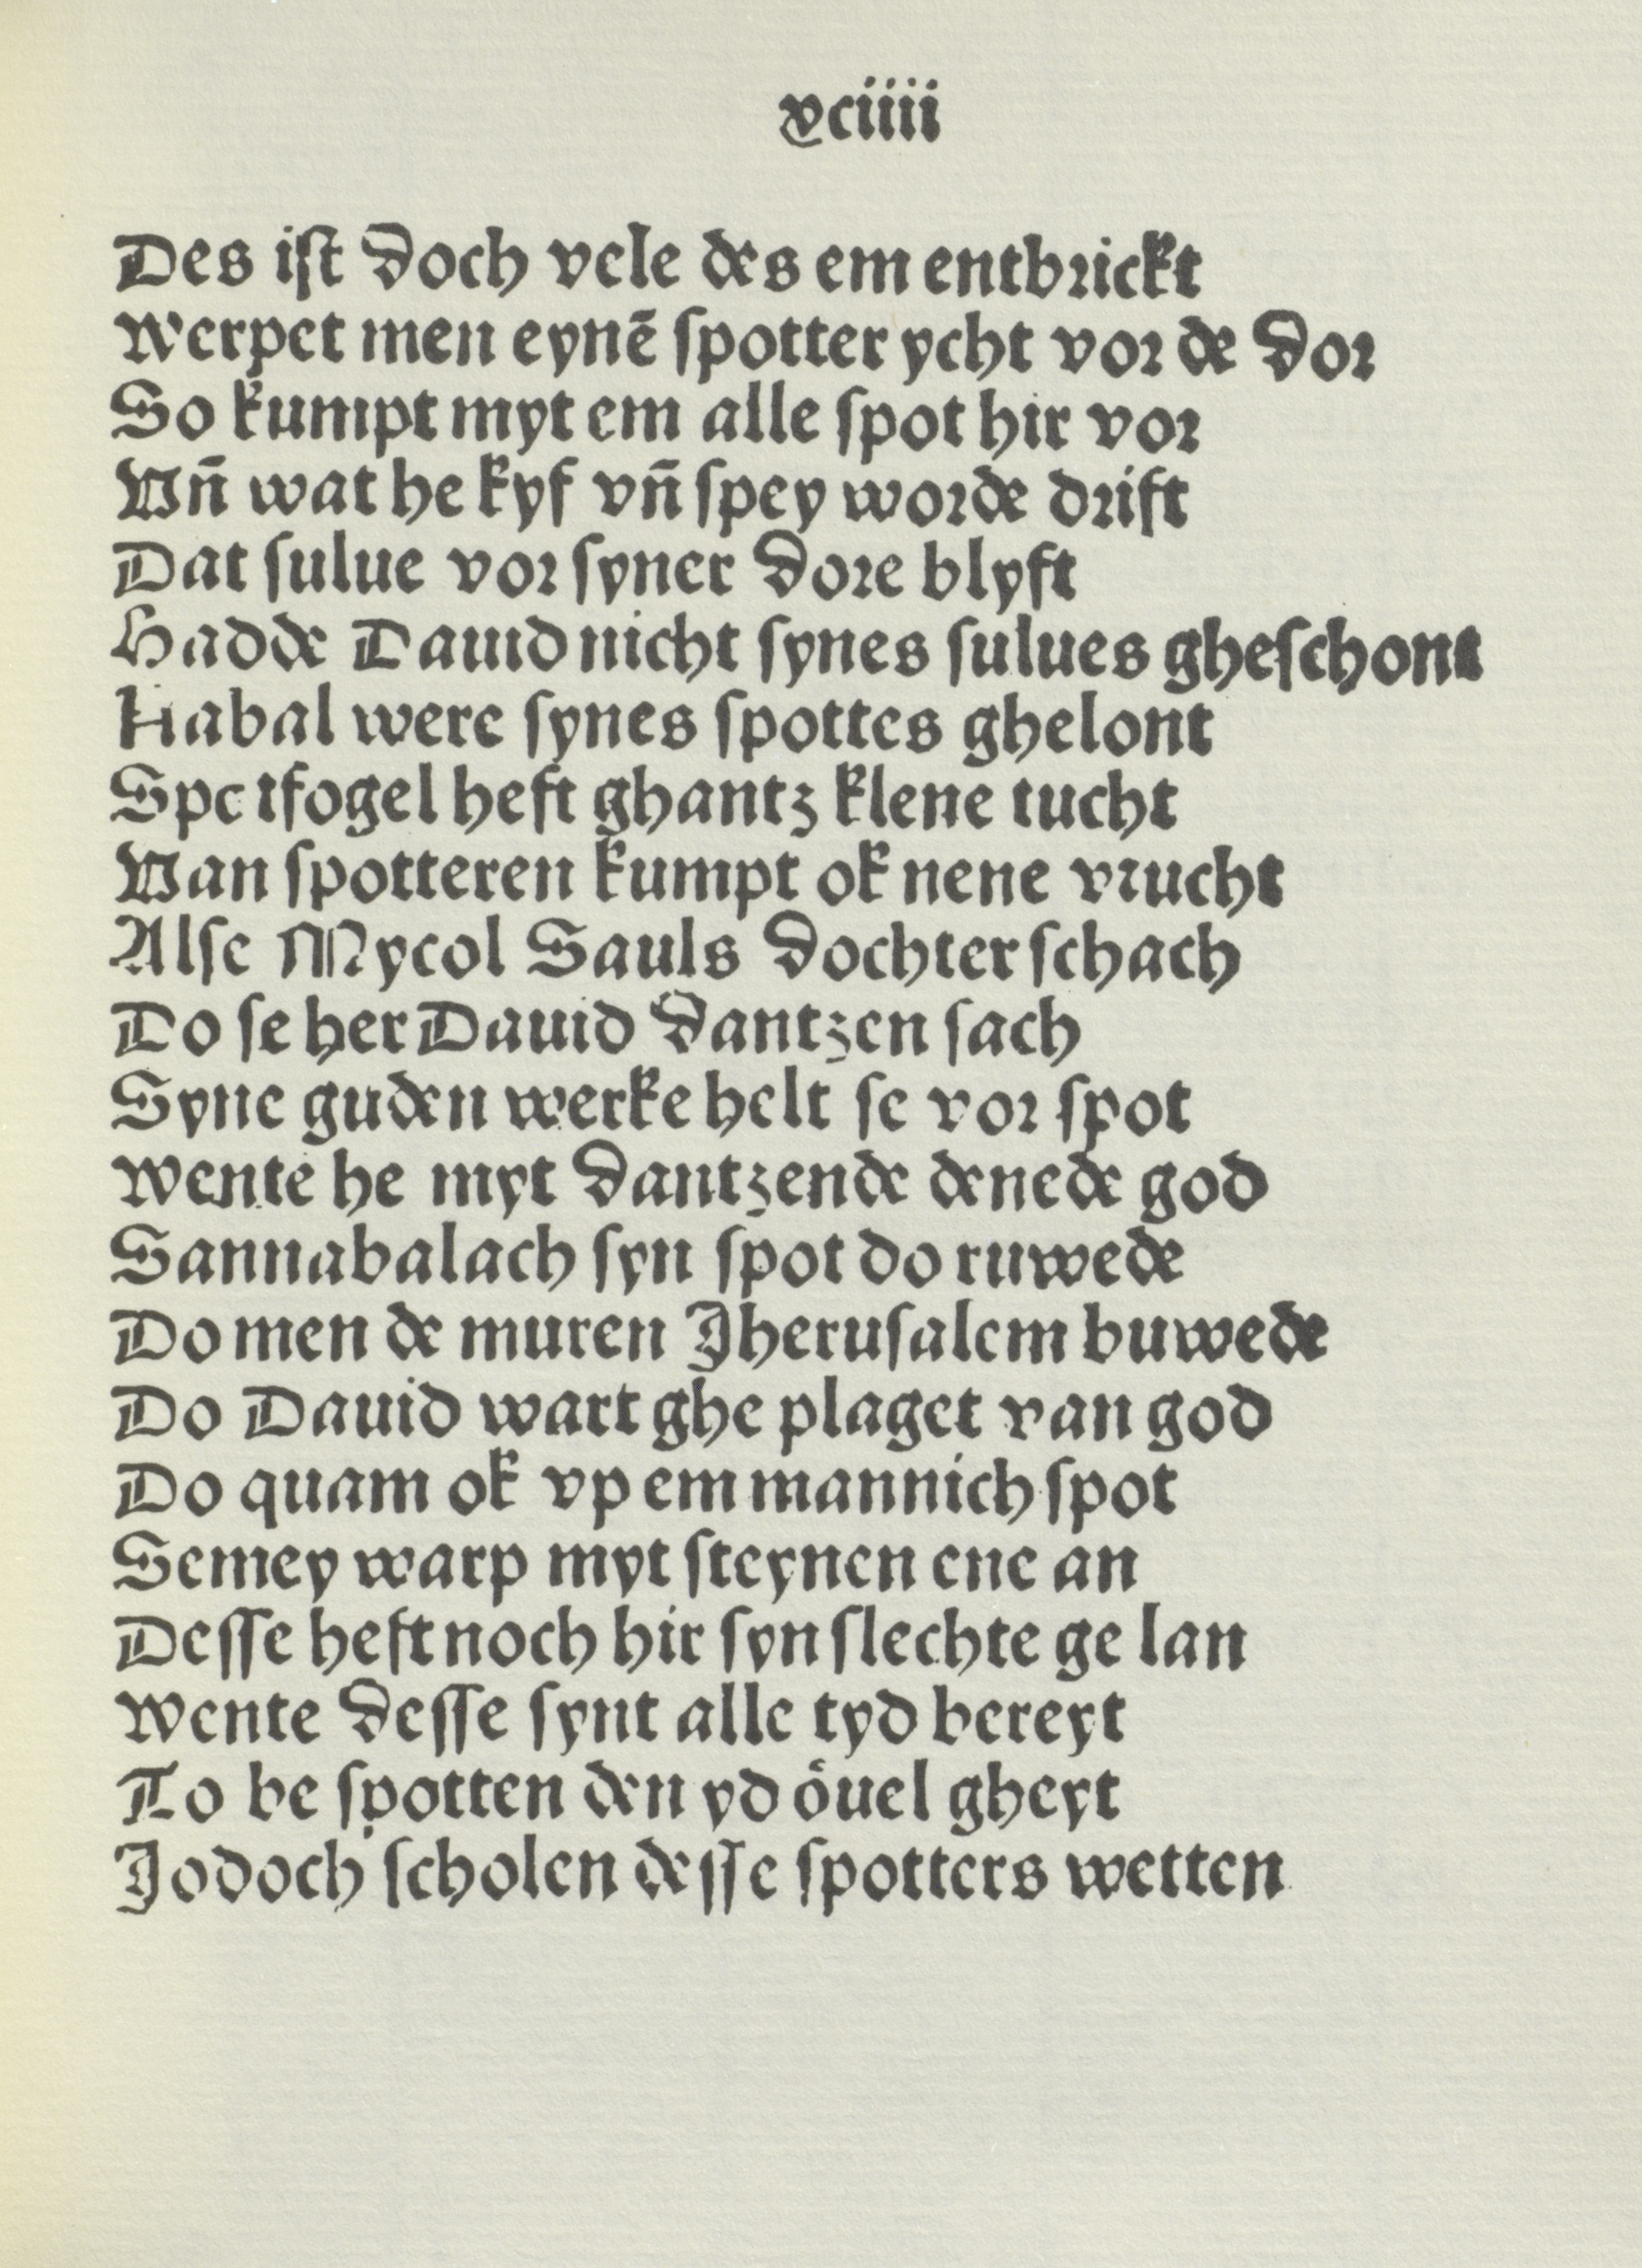 xciiii
Des ist doch vele des em entbrickt
Werpet men eynē spotter ycht vor de dor
So kumpt myt em alle spot hir vor
Vn̄ wat he kyf vn̄ spey worde drift
Dat sulue vor syner dore blyft
Hadde Dauid nicht synes sulues gheschont
Nabal were synes spottes ghelont
Spotfogel heft ghantz klene tucht
Van spotteren kumpt ok nene vrucht
Alse Mycol Sauls dochter schach
Do se her Dauid dantzen sach
Syne guden werke helt se vor spot
Wente he myt dantzende denede god
Sannabalach syn spot do ruwede
Do men de muren Jherusalem buwede
Do Dauid wart ghe plaget van god
Do quam ok vp em mannich spot
Semey warp myt steynen ene an
Desse heft noch hir syn slechte ge lan
Wente desse synt alle tyd bereyt
To be spotten den yd öuel gheyt
Jodoch scholen desse spotters wetten